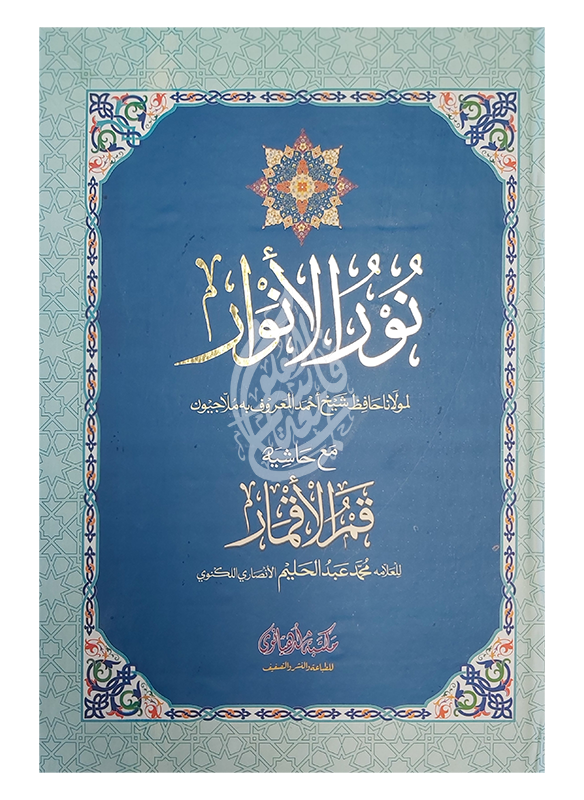 نُوْرُ الأنْوَار
لمولانا حافظ شيخ أحمد المعروف به ملاجيون
مع حاشيه
قمر الأقمار
للعلامه محمد عبد الحليم الأنصاري اللكنوي
مكتبة لدهيانوي
للطباعة والنشر والتصفيف